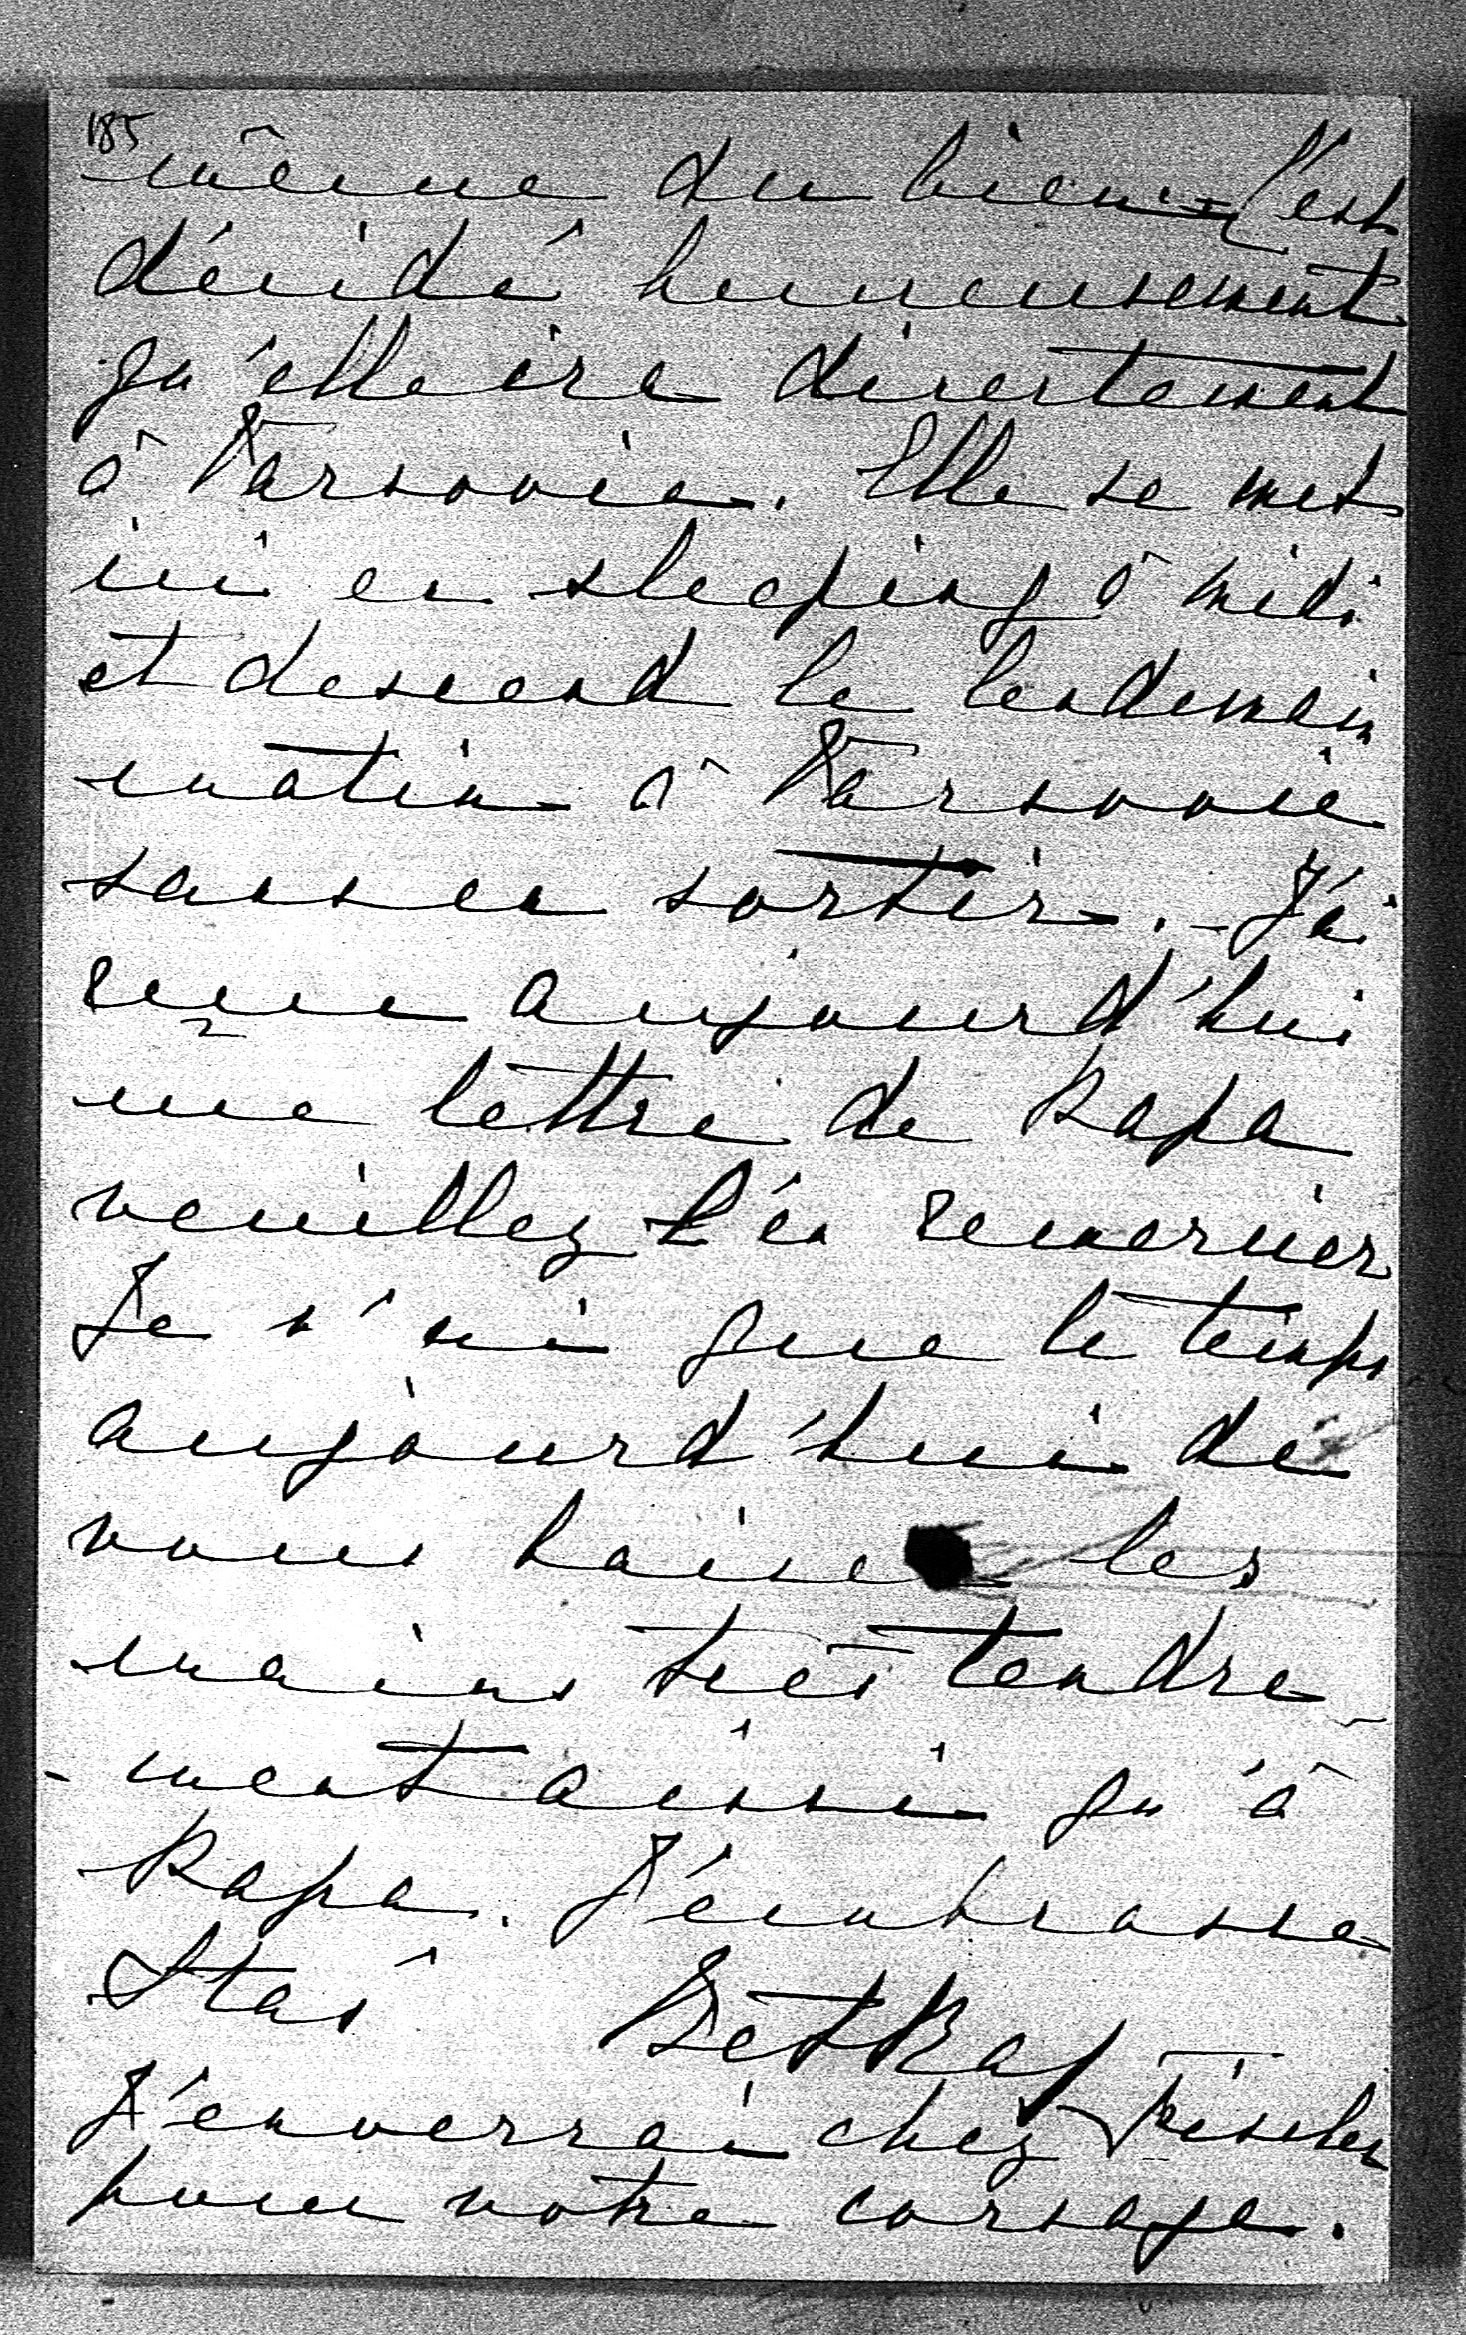 185
même du bien. – C'est
décidé heureusement
qu'elle ira directement
à Varsovie. Elle se met
ici en sleeping à midi
et descend le lendemain
matin à Varsovie
sans en sortir. – J'ai
reçu aujourd'hui
une lettre de Papa
veuillez l'en remercier
Je n'ai que le temps
aujourd'hui de
vous baiser les
mains très tendre-
- ment ainsi qu'à
Papa. J'embrasse
Staś BetKa
J'enverrai chez Fischer
pour votre corsage.